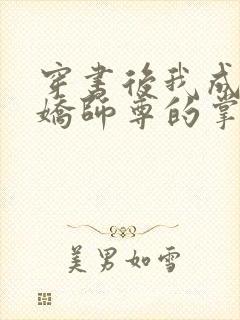 穿書後我成
嬌師尊的掌
美男如雪